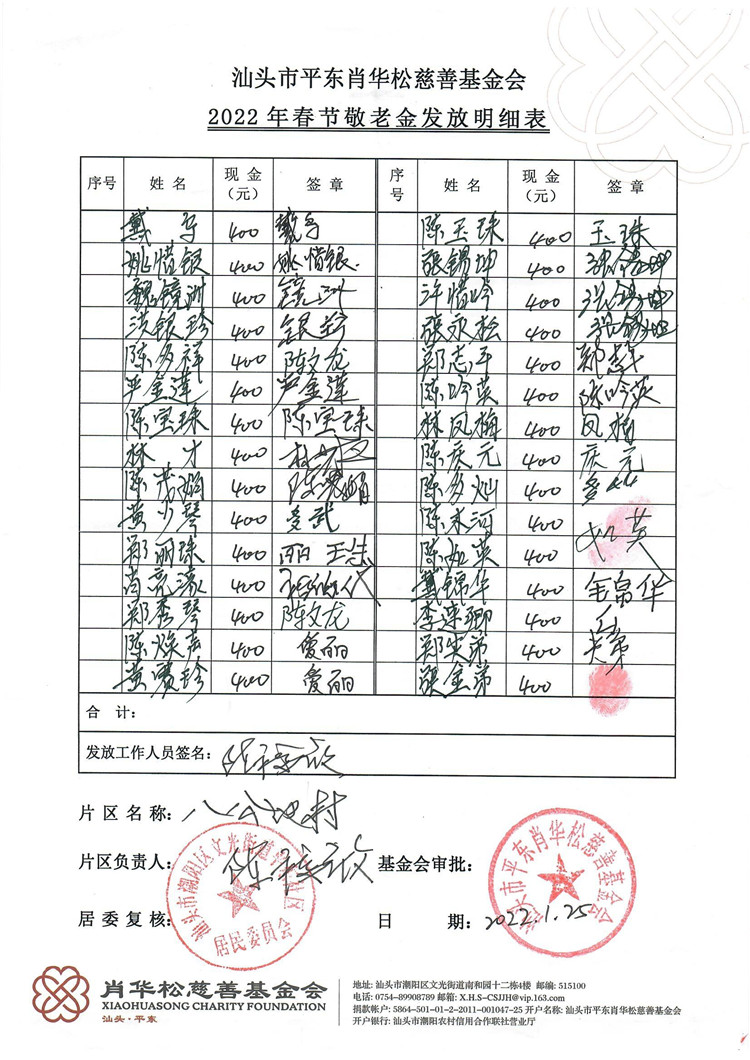 汕头市平东肖华松慈善基金会
2022年春节敬老金发放明细表
序号 姓名 现金（元） 签章 序号 姓名 现金（元） 签章
戴 400 陈玉珠 400 玉珠
姚惜银 400 姚惜银 张锡坤 400
400 许惜吟 400
洪银珍 400 张永松 400
陈多祥 400 陈文龙 郑志平 400
严金莲 400 严金莲 陈吟英 400 陈吟英
陈宝珠 400 陈宝珠 林凤梅 400 凤梅
林才 400 陈庆元 400 庆元
陈 400 陈多灿 400 多灿
黄少琴 400 陈木河 400
郑丽珠 400 陈如英 400 如英
肖 400 戴锦华 400 锦华
郑秀琴 400 陈文龙 李 卿 400
陈 400 爱丽 郑 弟 400
黄 珍 400 爱丽 张金弟 400
合 计：
发放工作人员签名：
片区名称： 村
片区负责人： 基金会审批：
居委复核： 日 期：2022.1.25
居民委员会
汕头市平东肖华松慈善基金会
肖华松慈善基金会
XIAOHUASONG CHARITY FOUNDATION
汕头·平东
地址：汕头市潮阳区文光街道南和园十二栋4楼 邮编：515100
电话：0754-89908789 邮箱：X.H.S-CSJJH@vip.163.com
捐款帐户：5864-501-01-2-2011-001047-25 开户名称：汕头市平东肖华松慈善基金会
开户银行：汕头市潮阳农村信用合作联社营业厅